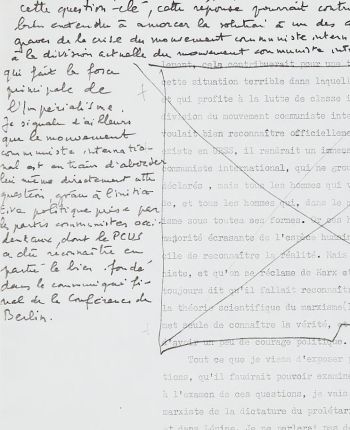 cette question-clé, cette réponse pourrait contri
bien entendu à amorcer la solution à un des a
graves de la crise du mouvement communiste intern
à la division actuelle du mouvement communiste inte
qui fait la force
principale de
l'Impérialisme.
Je signale d'ailleurs
que le mouvement
communiste internatio-
nal est en train d'aborder
lui même directement cette
question, grâce à l'initia-
tive politique prise par
les partis communistes occi
dentaux, dont le PCUS
a dû reconnaître en
partie le bien fondé
dans le communiqué fi-
nal de la Conférence de
Berlin.
cela contribuerait pour une
cette situation terrible dans laquell
et qui profite à la lutte de classe i
division du mouvement communiste inte
voulait bien reconnaître officielleme
existe en URSS, il rendrait un immens
communiste international, qui ne grou
déclarés, mais tous les hommes qui v
e, et tous les hommes qui, dans le
isme sous toutes ses formes.
majorité écrasante de l'espèce humai
cile de reconnaître la réalité. Mais
niste, et qu'on se réclame de Marx et
toujours dit qu'il fallait reconnaît
la théorie scientifique du marxisme
met seule de connaître la vérité, et
d'avoir un peu de courage politique.
Tout ce que je viens d'exposer
tions, qu'il faudrait pouvoir examine
à l'examen de ces questions, je vais
marxiste de la dictature du prolétar
et dans Lénine. Je ne parlerai pas de